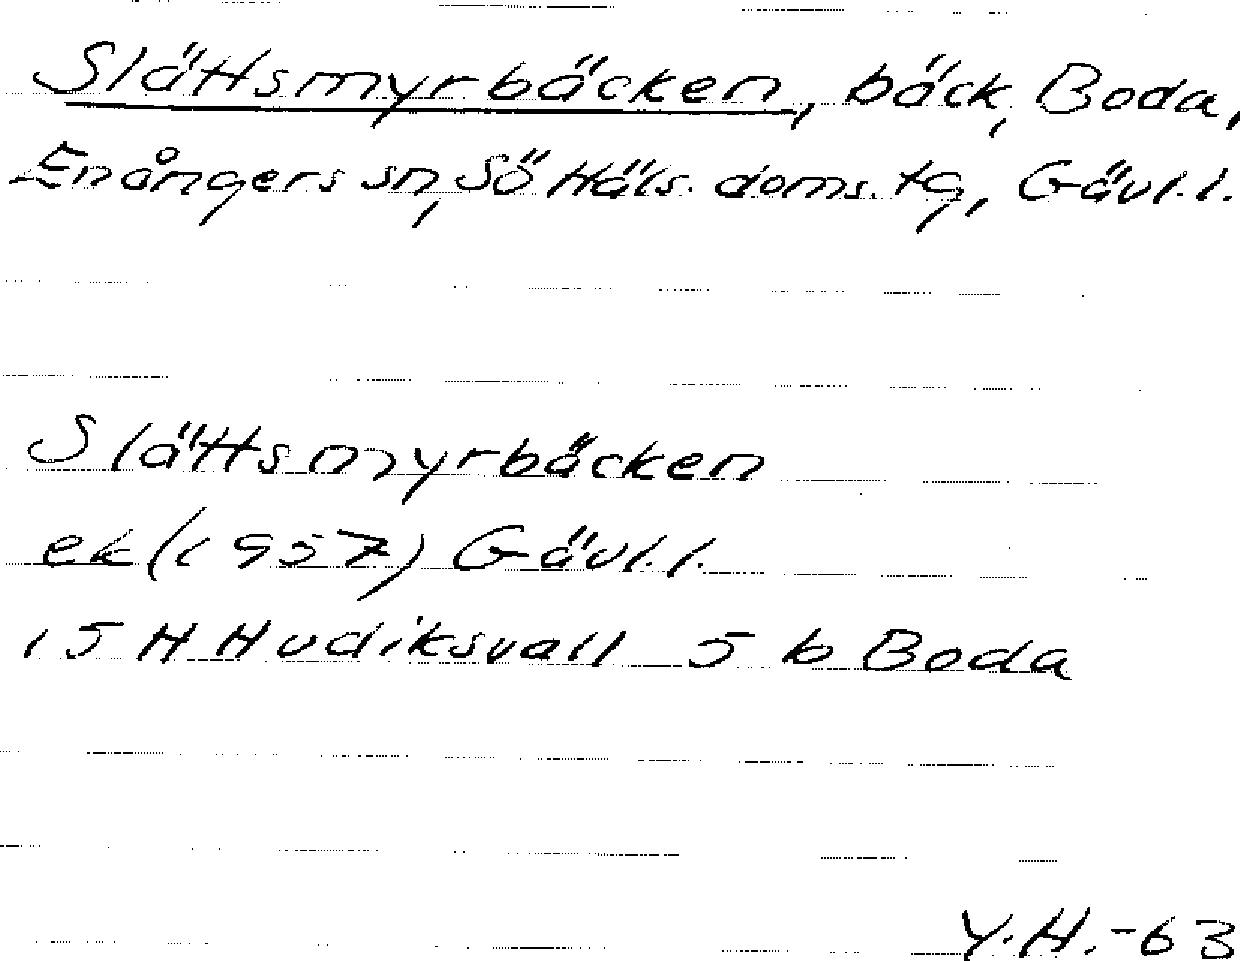 Slättsmyrbäcken, bäck, Boda,
Enångers sn, SÖ Häls. doms. tg, Gävl.l.
Slättsmyrbäcken
ek (1957) Gävl.l.
15 H Hudiksvall 5 b Boda
Y.H.-63